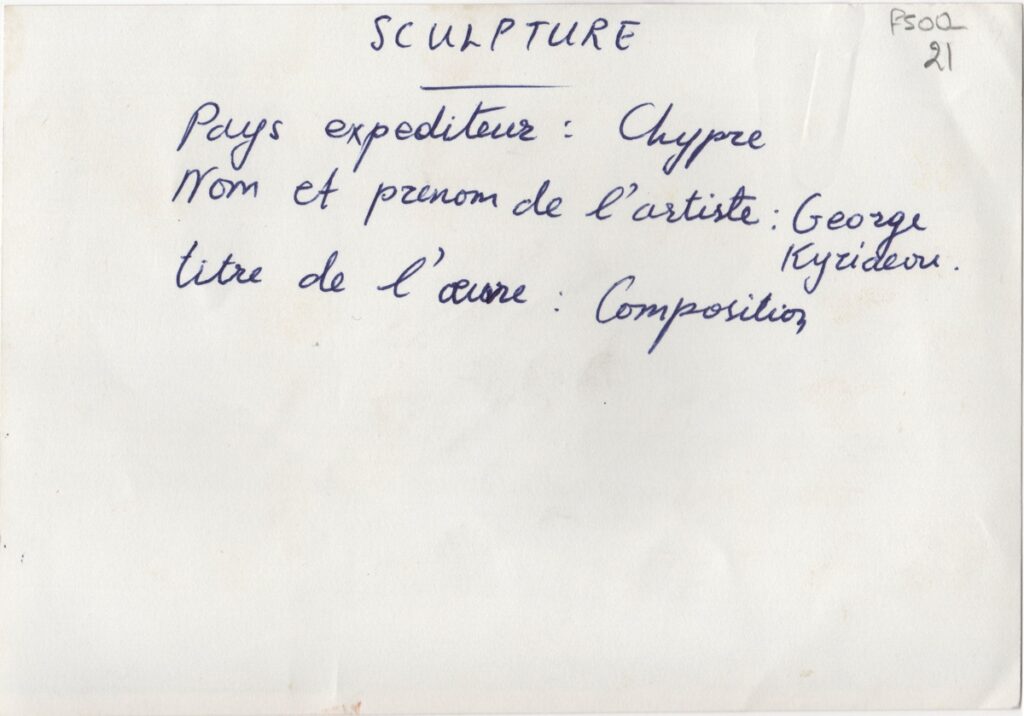 SCULPTURE
21
Pays expediteur : Chypre
Nom et prenom de l'artiste : George
titre de l'œuvre : Composition